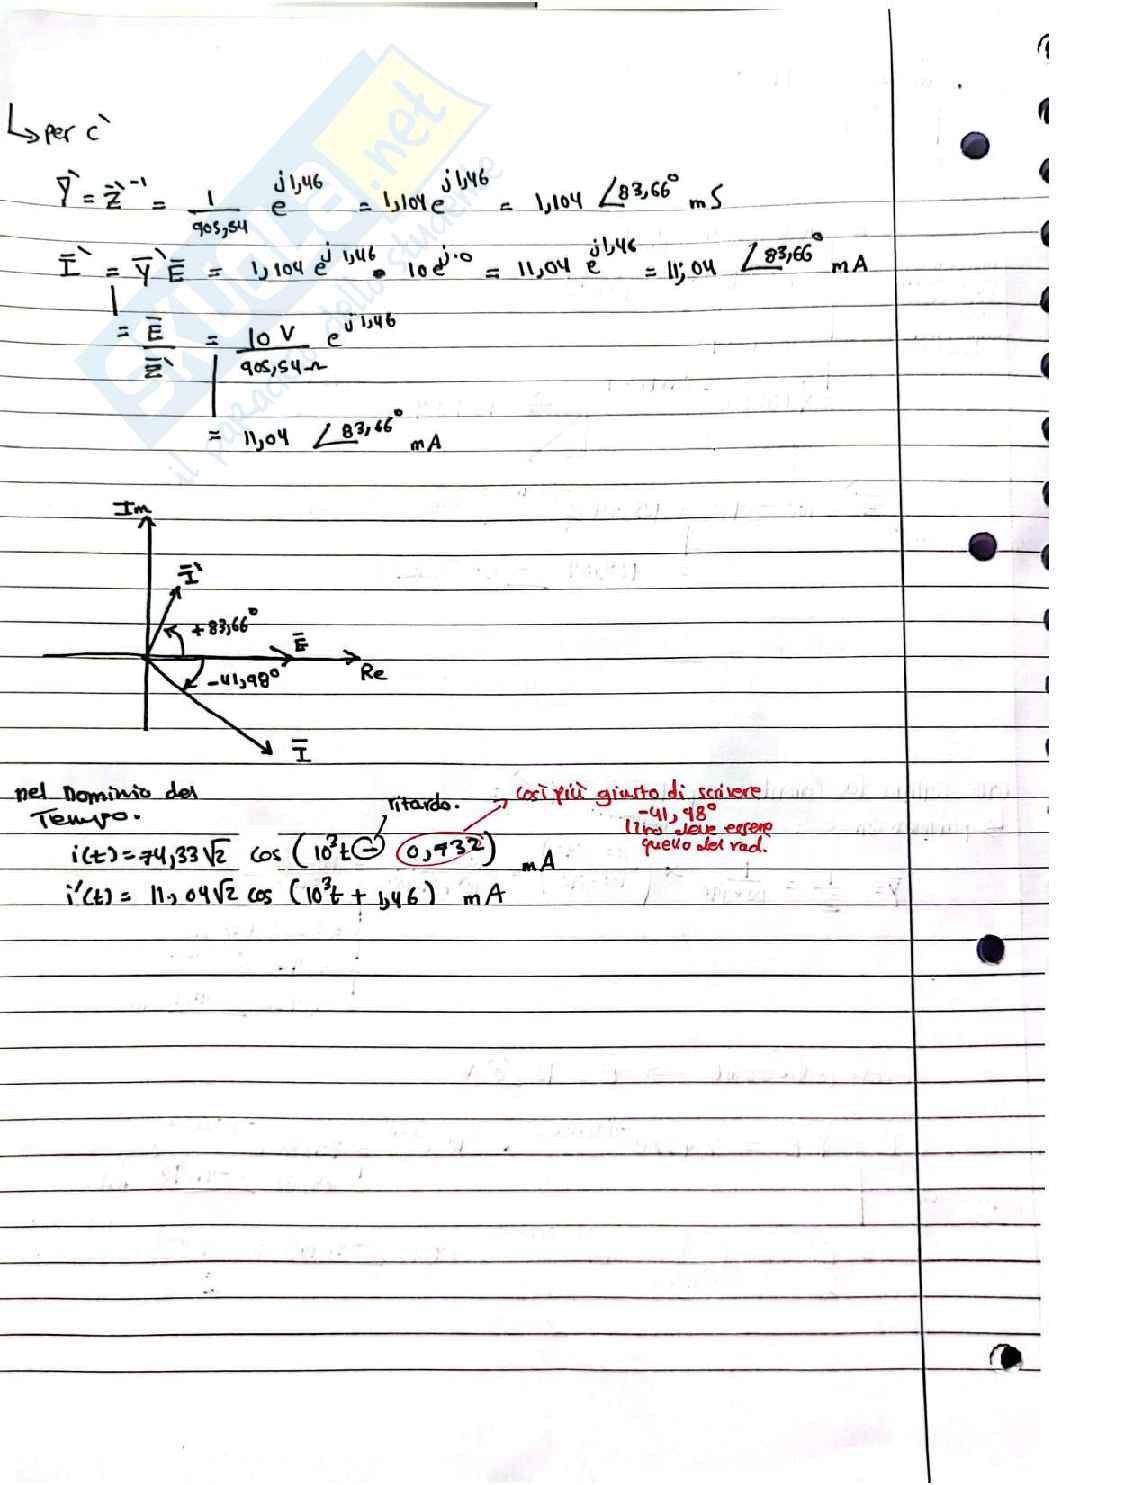 ↳ per c`
Ȳ` = Z̄`⁻¹ = 1/905,54 e^j1,46 = 1,104 e^j1,46 = 1,104 ∠83,66° mS
Ī` = Ȳ`Ē = 1,104 e^j1,46 • 10 e^j·0 = 11,04 e^j1,46 = 11,04 ∠83,66° mA
= Ē/Z̄` = 10 V/905,54 Ω e^j1,46
= 11,04 ∠83,66° mA
Im
Ī`
+83,66°
Ē
Re
-41,98°
Ī
nel Dominio del
Tempo.
ritardo.
così più giusto di scrivere
-41,98°
deve essere
quello del rad.
i(t) = 74,33√2 cos (10³t - 0,732) mA
i'(t) = 11,04√2 cos (10³t + 1,46) mA
skuola.net
il paradiso dello studente